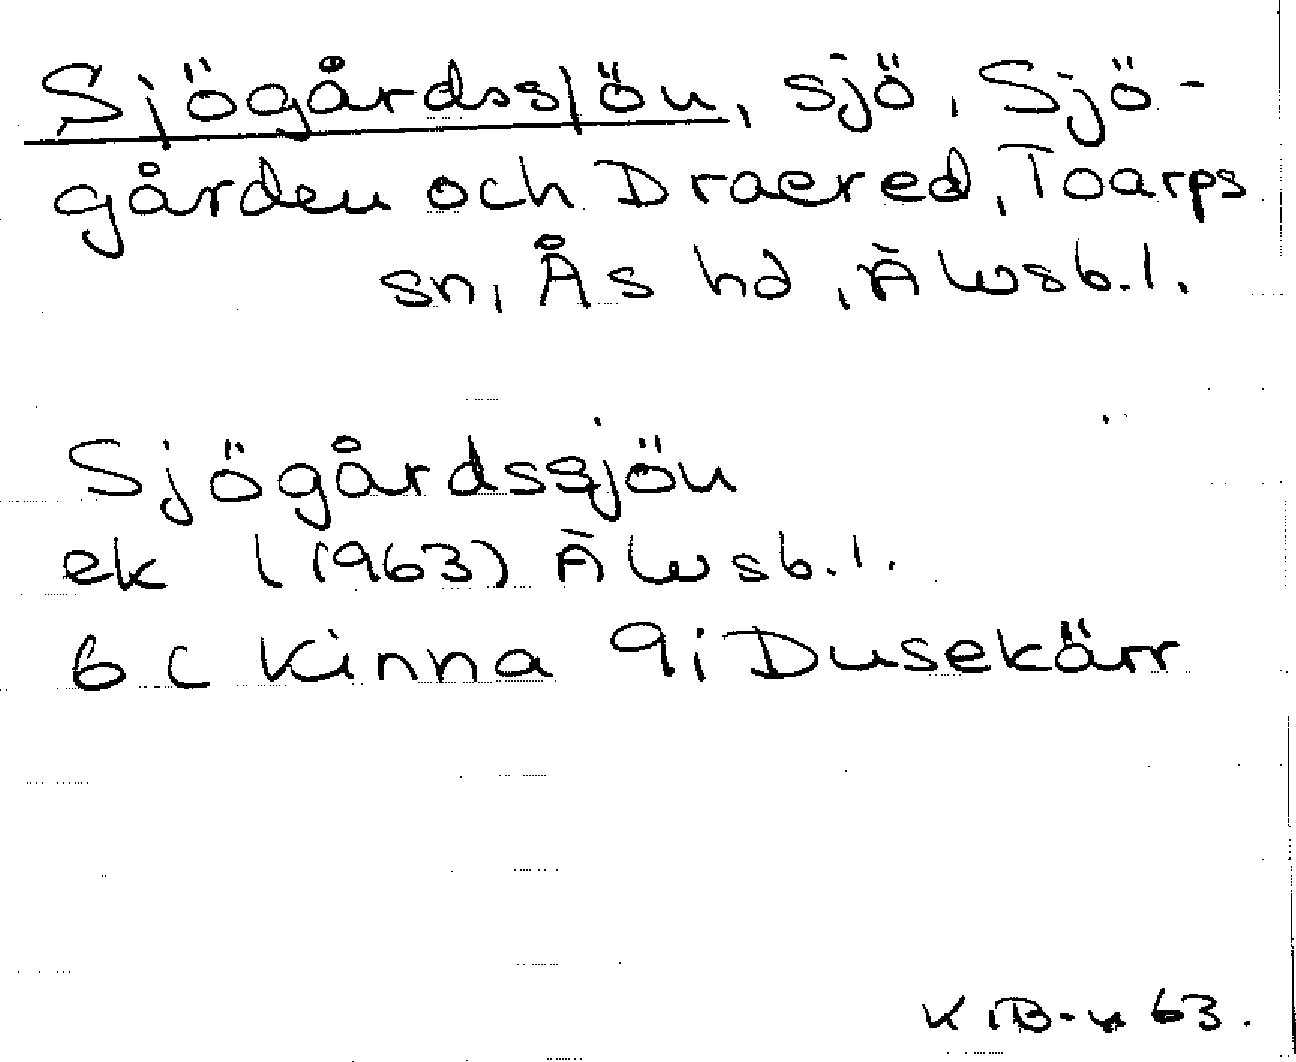 Sjögårdssjön, sjö, Sjö-
gården och Draered, Toarps
sn, Ås hd, Älvsb.l.
Sjögårdssjön
ek l (1963) Älvsb.l.
6 C Kinna 9i Dusekärr
63.